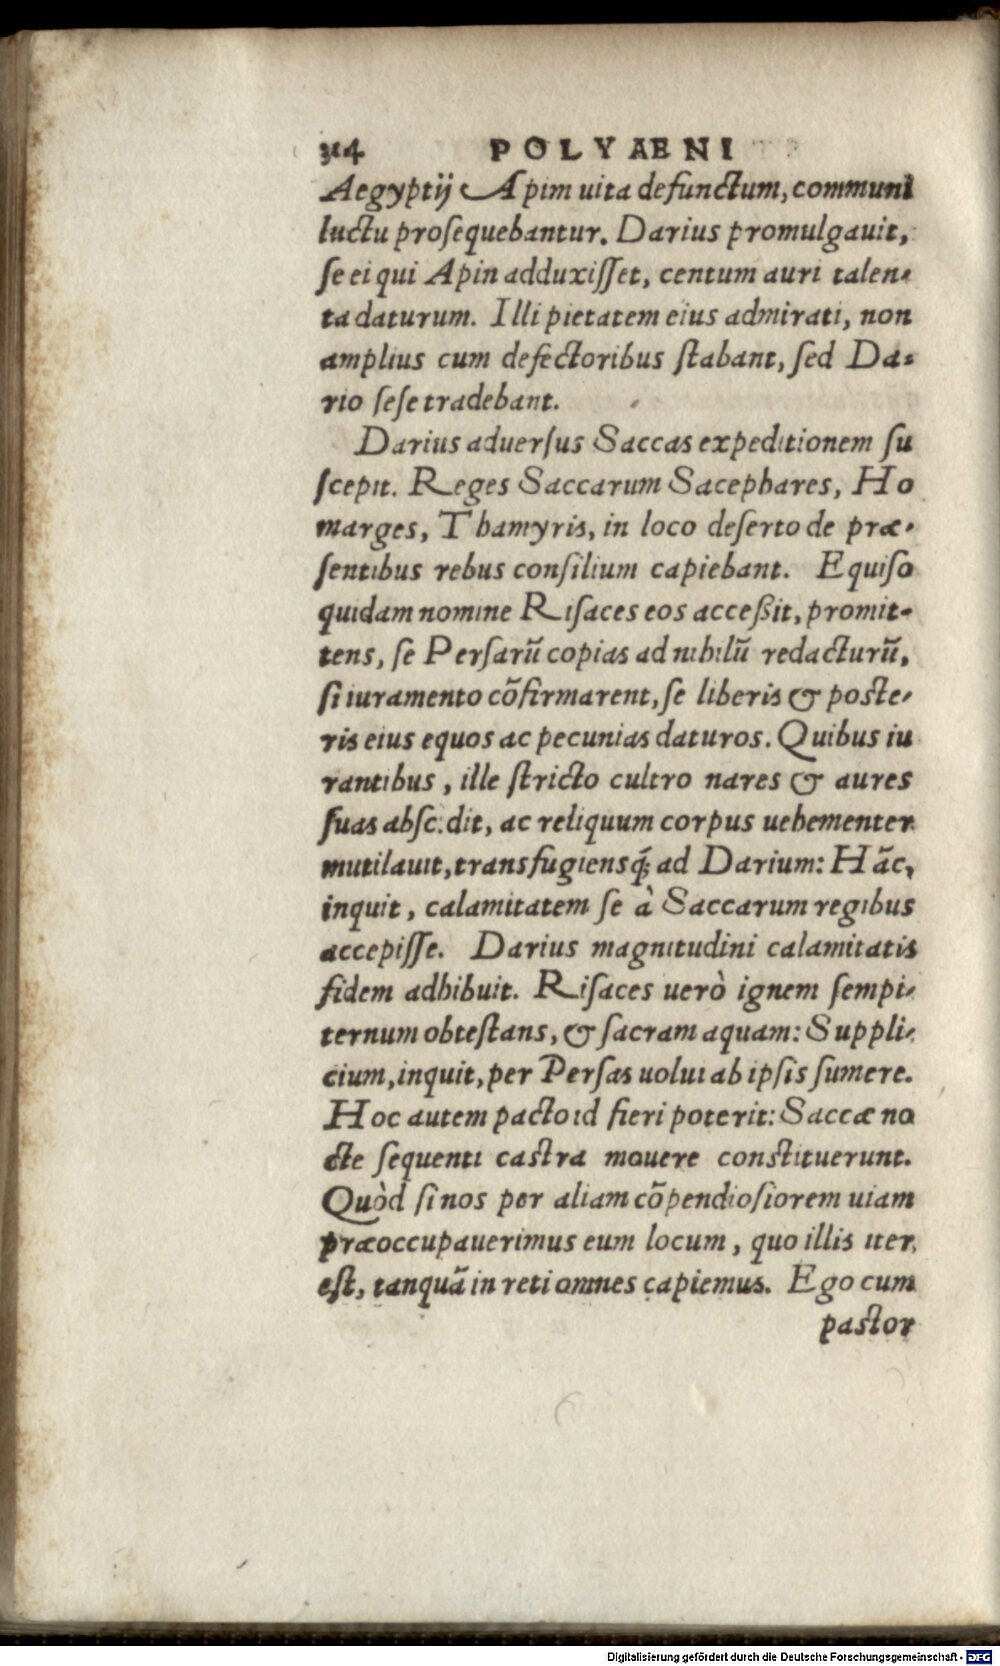 314 POLYAENI
Aegyptij Apim uita defunctum, communi
luctu prosequebantur. Darius promulgauit,
se ei qui Apin adduxisset, centum auri talen-
ta daturum. Illi pietatem eius admirati, non
amplius cum defectoribus stabant, sed Da-
rio sese tradebant.
Darius aduersus Saccas expeditionem su
scepit. Reges Saccarum Sacephares, Ho
marges, Thamyris, in loco deserto de præ-
sentibus rebus consilium capiebant. Equiso
quidam nomine Risaces eos acceßit, promit-
tens, se Persarũ copias ad nihilũ redacturũ,
si iuramento cõfirmarent, se liberis & poste-
ris eius equos ac pecunias daturos. Quibus iu
rantibus, ille stricto cultro nares & aures
suas absc.dit, ac reliquum corpus uehementer
mutilauit, transfugiensq; ad Darium: Hãc,
inquit, calamitatem se à Saccarum regibus
accepisse. Darius magnitudini calamitatis
fidem adhibuit. Risaces uerò ignem sempi-
ternum obtestans, & sacram aquam: Suppli-
cium, inquit, per Persas uolui ab ipsis sumere.
Hoc autem pacto id fieri poterit: Saccæ no
cte sequenti castra mouere constituerunt.
Quòd si nos per aliam cõpendiosiorem uiam
præoccupauerimus eum locum, quo illis iter
est, tanquã in reti omnes capiemus. Ego cum
pastor
Digitalisierung gefördert durch die Deutsche Forschungsgemeinschaft - DFG